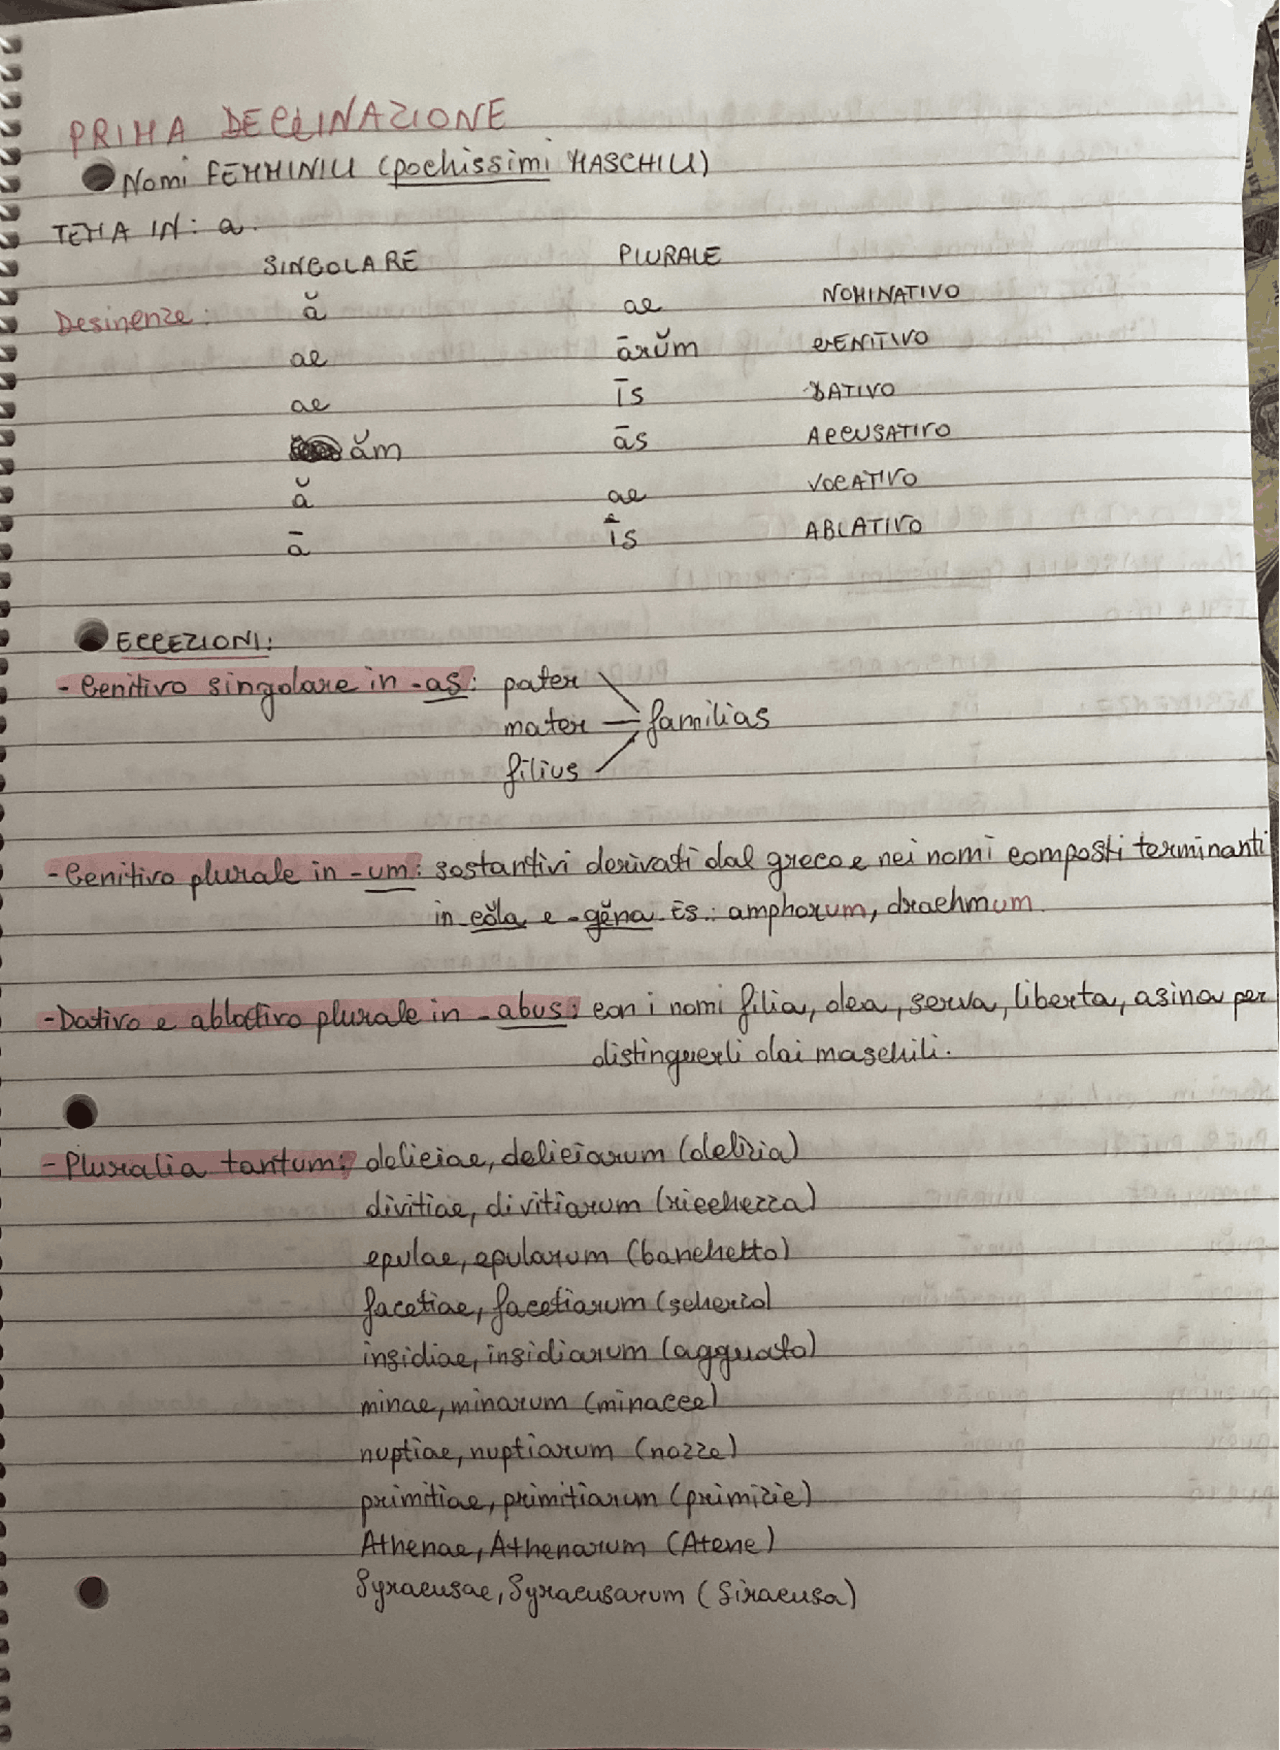 PRIMA DECLINAZIONE
Nomi FEMMINILI (pochissimi MASCHILI)
TEMA IN: a.
SINGOLARE PLURALE
Desinenze: ă ae NOMINATIVO
ae ārŭm GENITIVO
ae īs DATIVO
ăm ās ACCUSATIVO
ă ae VOCATIVO
ā īs ABLATIVO
ECCEZIONI:
- Genitivo singolare in -as: pater
mater familias
filius
- Genitivo plurale in -um: sostantivi derivati dal greco e nei nomi composti terminanti
in cŏla e -gĕna Es.: amphorum, drachmum
- Dativo e ablativo plurale in -abus: con i nomi filia, dea, serva, liberta, asina per
distinguerli dai maschili.
- Pluralia tantum: deliciae, deliciarum (delizia)
divitiae, divitiarum (ricchezza)
epulae, epularum (banchetto)
facetiae, facetiarum (scherzo)
insidiae, insidiarum (agguato)
minae, minarum (minacce)
nuptiae, nuptiarum (nozze)
primitiae, primitiarum (primizie)
Athenae, Athenarum (Atene)
Syracusae, Syracusarum (Siracusa)